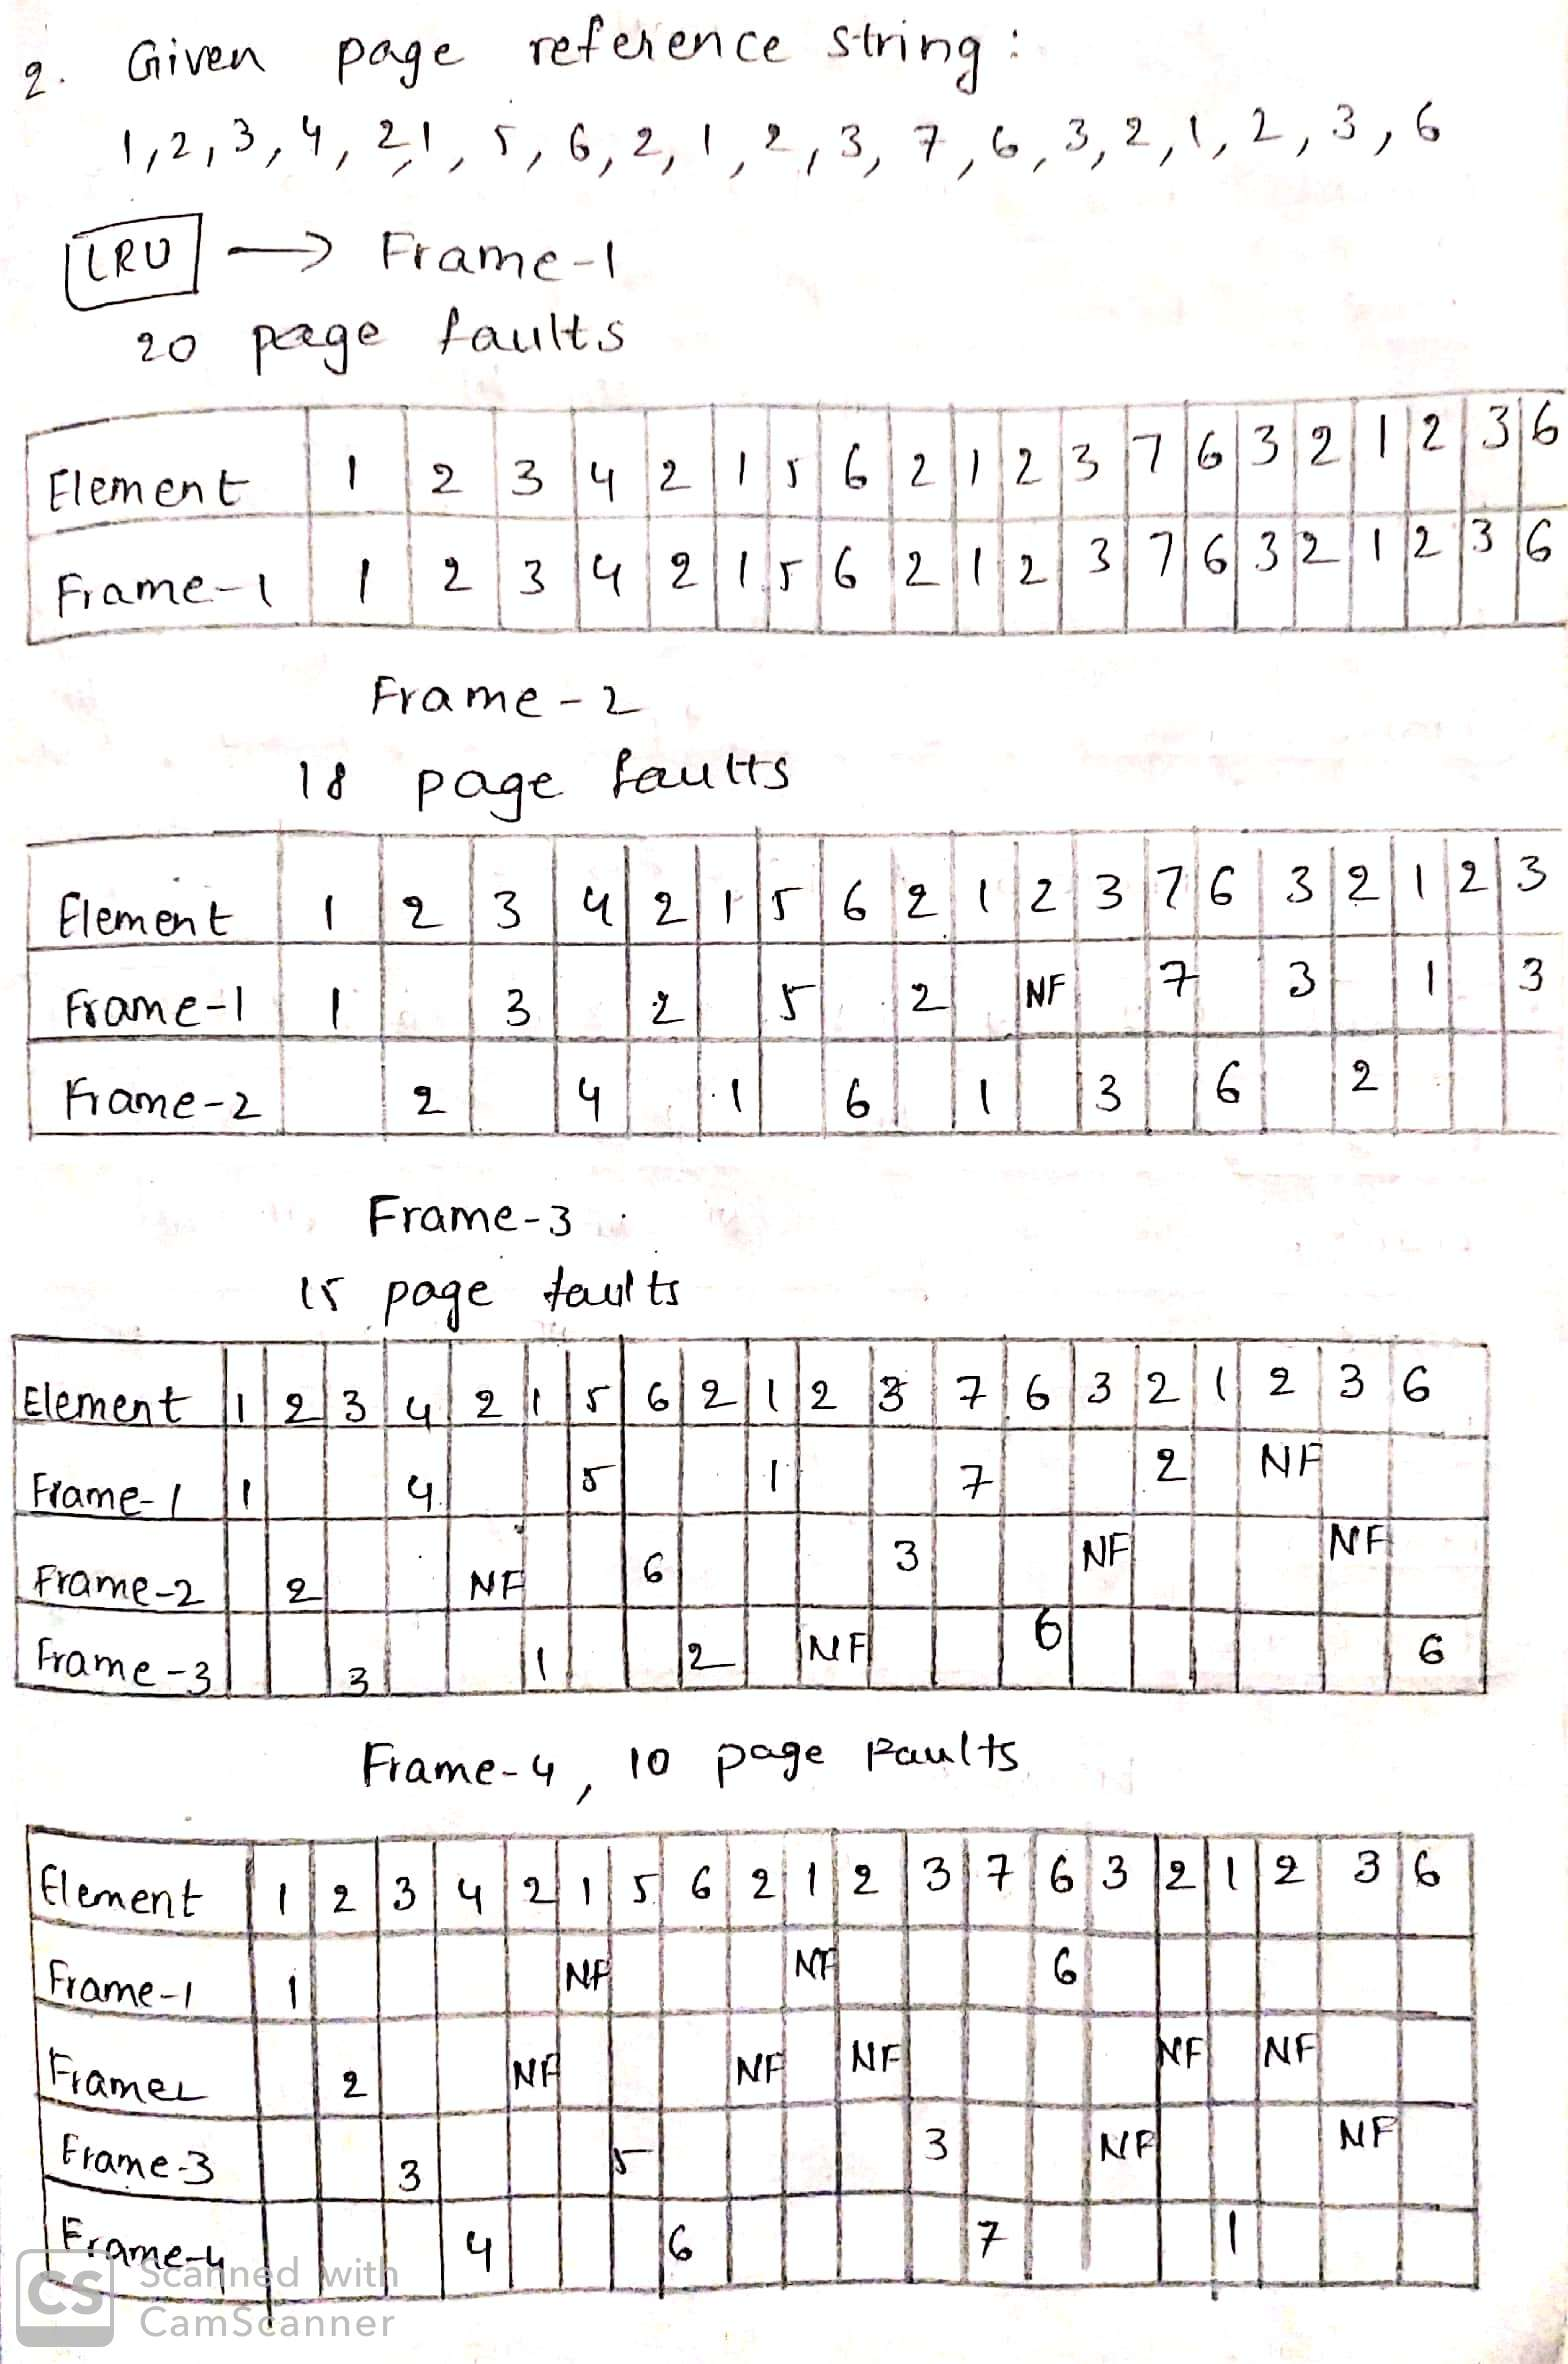 2. Given page reference string :
1,2,3,4,2,1,5,6,2,1,2,3,7,6,3,2,1,2,3,6
LRU → Frame-1
20 page faults
Element 1 2 3 4 2 1 5 6 2 1 2 3 7 6 3 2 1 2 3 6
Frame-1 1 2 3 4 2 1 5 6 2 1 2 3 7 6 3 2 1 2 3 6
Frame-2
18 page faults
Element 1 2 3 4 2 1 5 6 2 1 2 3 7 6 3 2 1 2 3
Frame-1 1 3 2 5 2 NF 7 3 1 3
Frame-2 2 4 1 6 1 3 6 2
Frame-3
15 page faults
Element 1 2 3 4 2 1 5 6 2 1 2 3 7 6 3 2 1 2 3 6
Frame-1 1 4 5 1 7 2 NF
Frame-2 2 NF 6 3 NF NF
Frame-3 3 1 2 NF 6 6
Frame-4, 10 page faults
Element 1 2 3 4 2 1 5 6 2 1 2 3 7 6 3 2 1 2 3 6
Frame-1 1 NF NF 6
Frame2 2 NF NF NF NF NF
Frame-3 3 5 3 NF NF
Frame-4 4 6 7 1
CS Scanned with
CamScanner